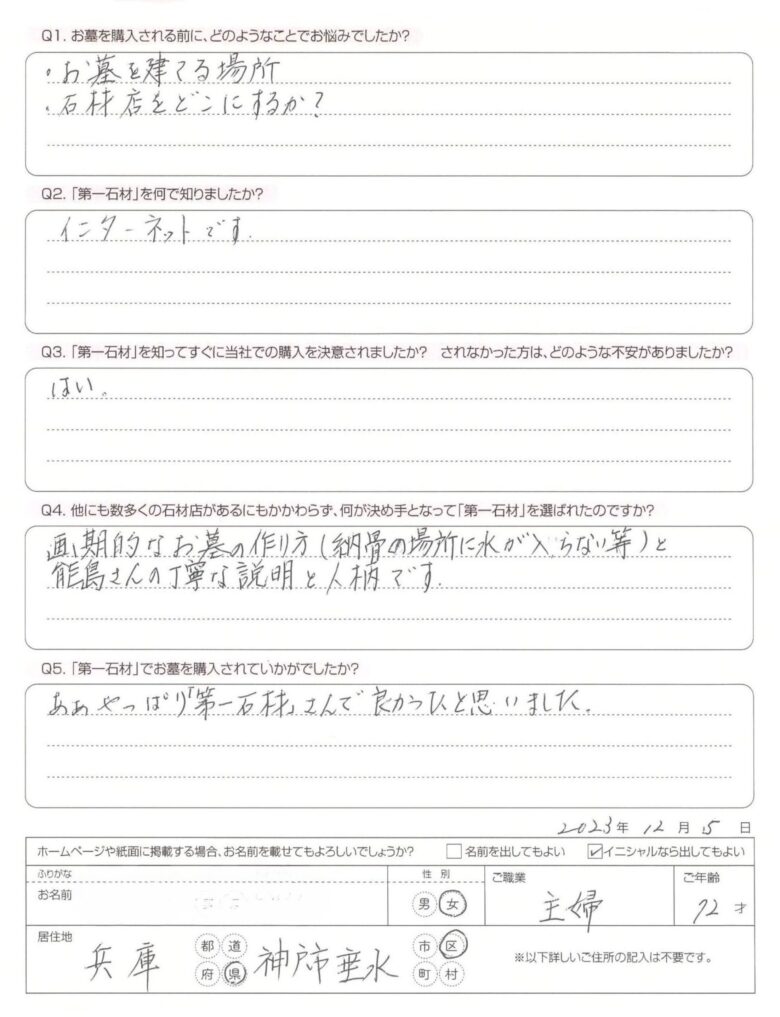 Q1. お墓を購入される前に、どのようなことでお悩みでしたか?
・お墓を建てる場所
・石材店をどこにするか?
Q2.「第一石材」を何で知りましたか?
インターネットです.
Q3.「第一石材」を知ってすぐに当社での購入を決意されましたか? されなかった方は、どのような不安がありましたか?
はい。
Q4. 他にも数多くの石材店があるにもかかわらず、何が決め手となって「第一石材」を選ばれたのですか?
画期的なお墓の作り方(納骨の場所に水が入らない等)と
能島さんの丁寧な説明と人柄です.
Q5.「第一石材」でお墓を購入されていかがでしたか?
あぁやっぱり「第一石材」さんで良かったと思いました。
2023年 12月 15日
ホームページや紙面に掲載する場合、お名前を載せてもよろしいでしょうか? □名前を出してもよい ☑イニシャルなら出してもよい
ふりがな
お名前
性別
男 女
ご職業
主婦
ご年齢
72才
居住地
兵庫 都 道 府 県 神戸市垂水 市 区 町 村
※以下詳しいご住所の記入は不要です。